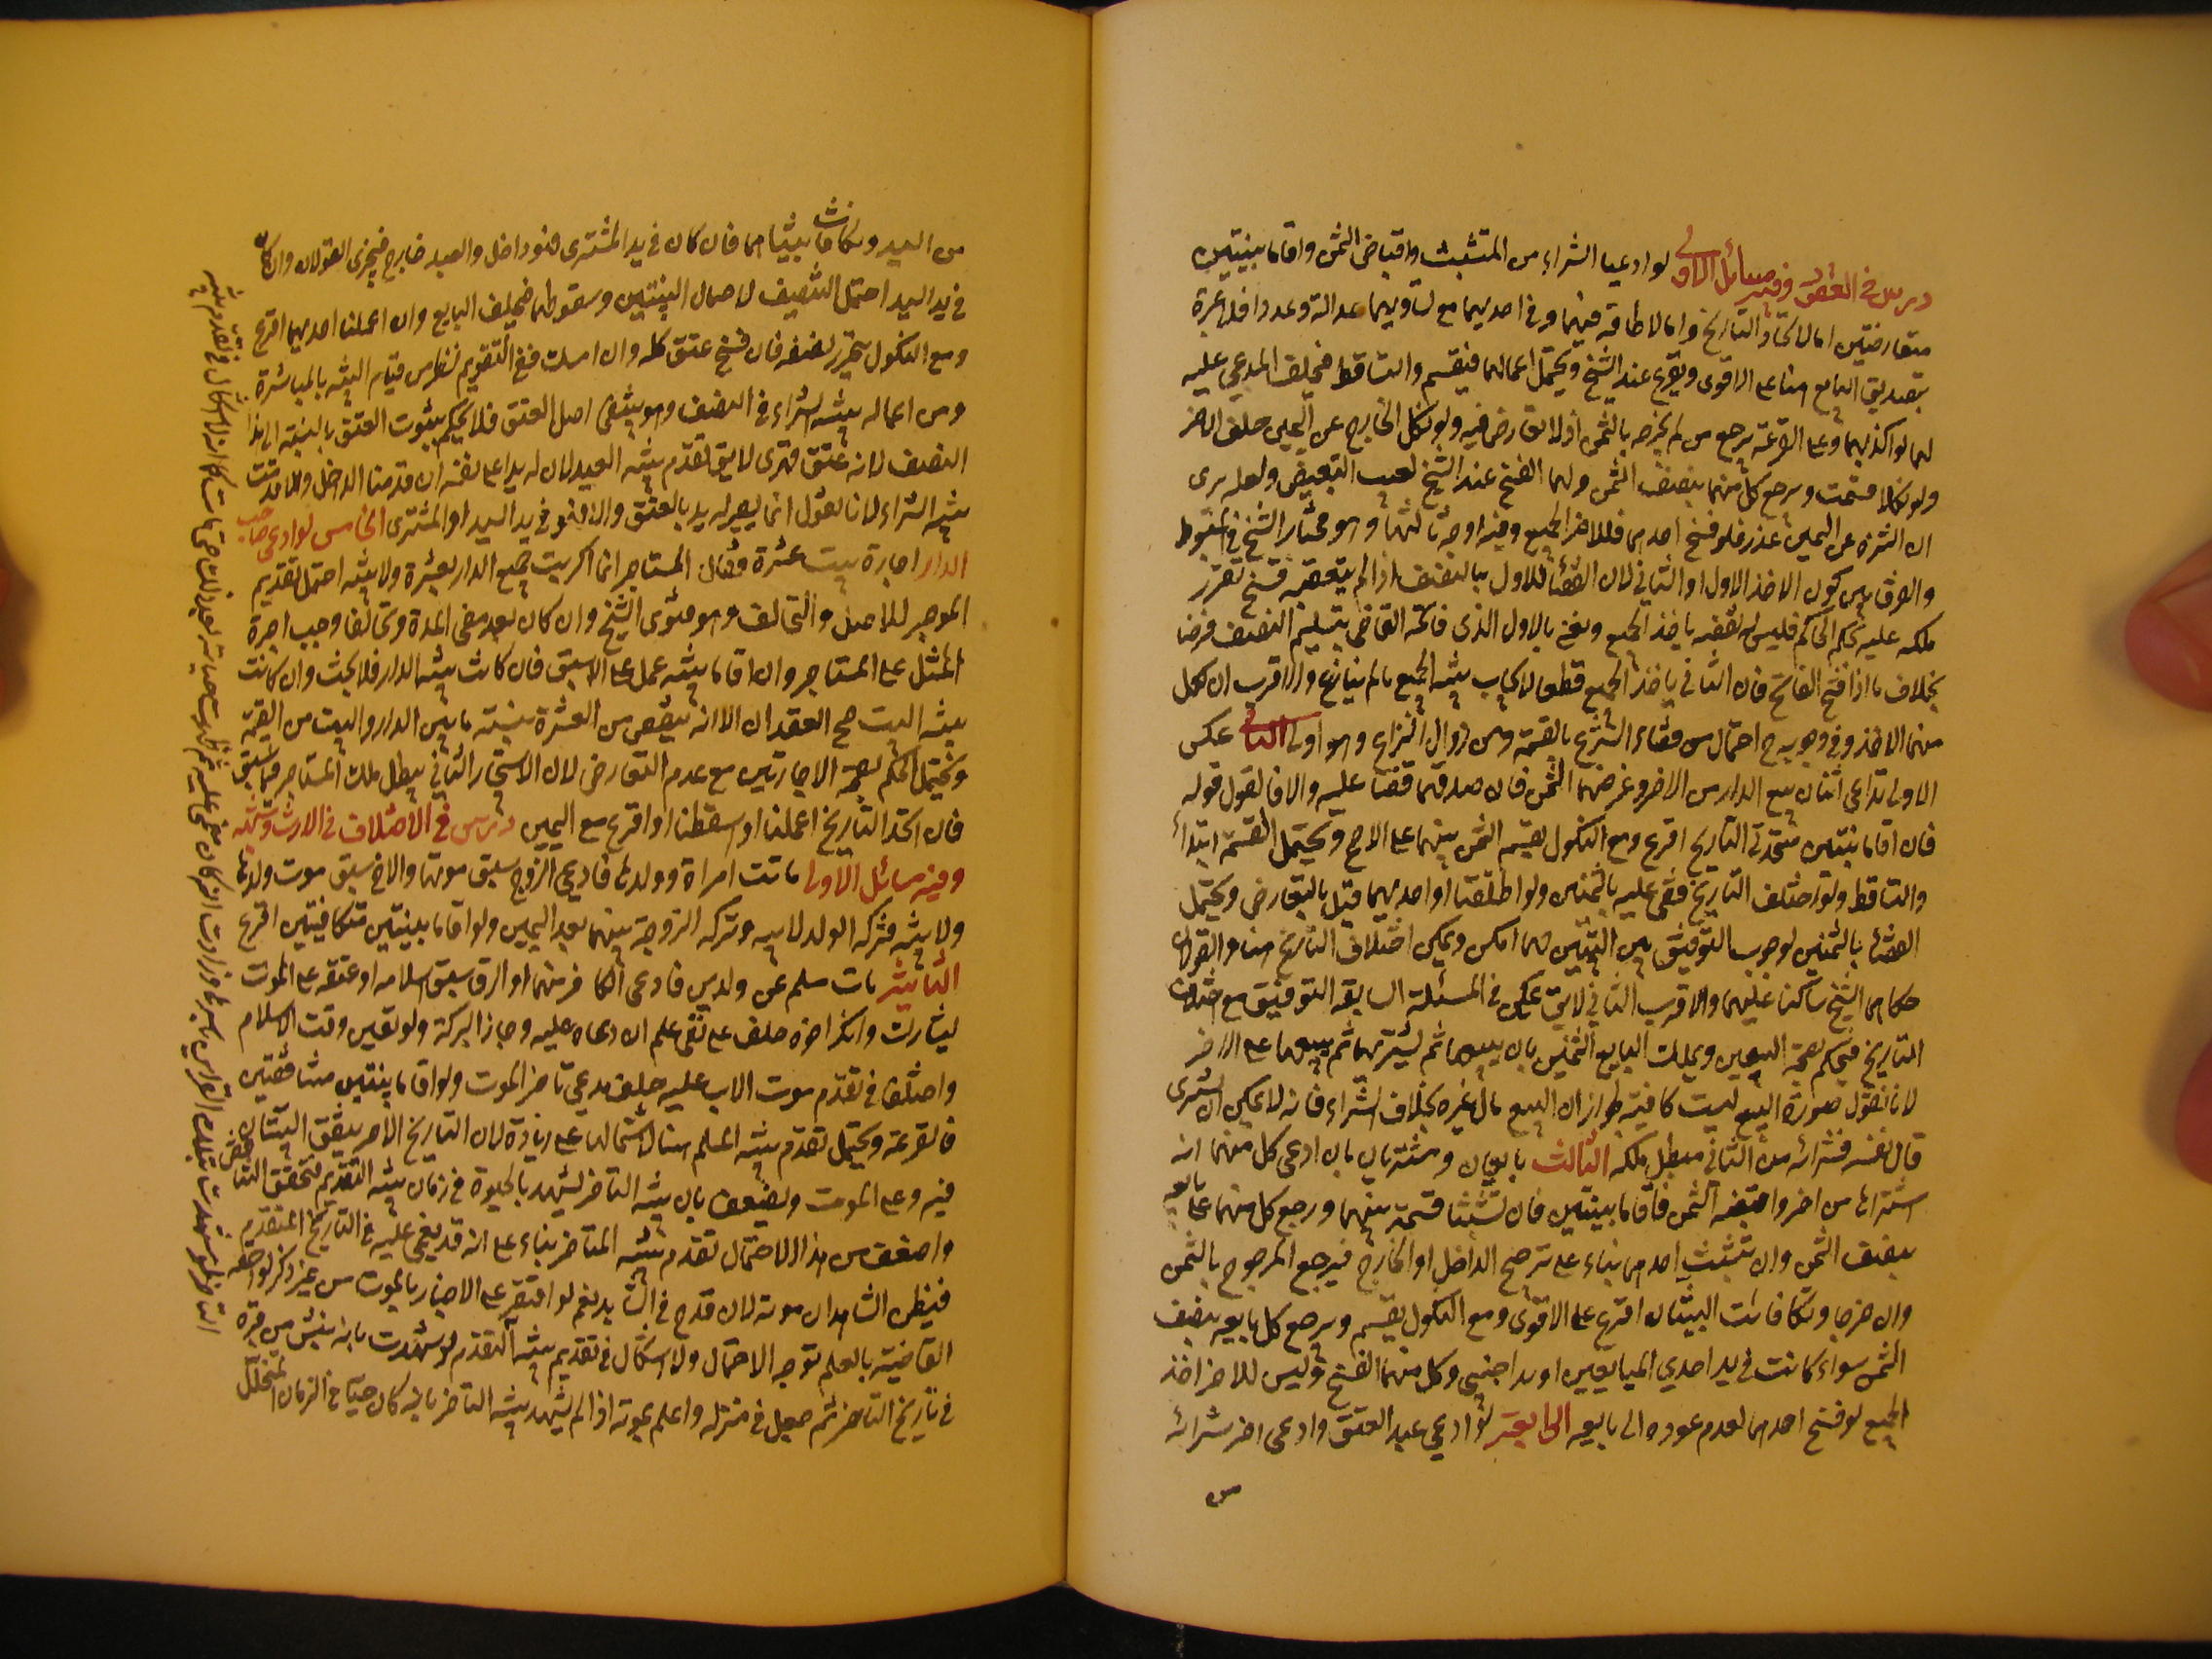 درس في العقود وفيه مسائل الاولى لو ادعيا الشراء من المتشبث واقباض الثمن واقاما بينتين
متعارضتين اما لاتحاد التاريخ واما لاطلاقه فيهما او في احديهما مع تساويهما عدالة وعددا فلا عبرة
بتصديق البايع هنا على الاقوى ويقرع عند الشيخ ويحتمل اعمالهما فيقسم والتساقط فيحلف المدعي عليه
لهما لو اكذبهما وعلى القرعة يرجع من لم يخرجه بالثمن اذ لا تعارض فيه ولو نكل الخارج عن اليمين حلف الاخر
ولو نكلا قسمت ويرجع كل منهما بنصف الثمن ولهما الفسخ عند الشيخ لعيب التبعيض ولعله يرى
ان النزه عن اليمين عذر فلو فسخ احدهما فللاخر الجميع وفيه اوجه ثالثها وهو مختار الشيخ في المبسوط
والفرق بين كون الاخذ الاول او الثاني لان القضاء للاول بالنصف اذا لم يتعقبه فسخ تقرر
ملكه عليه بحكم الحاكم فليس له نقضه ياخذ الجميع ونعني بالاول الذي فاتحه القاضي بتسليم النصف فرضا
بخلاف ما اذا فسخ الفاتح فان الثاني ياخذ الجميع قطعا لايجاب بينة الجميع ما لم ينازع والاقرب ان لكل
منهما الاخذ وفي وجوبه ح احتمال من قضاء الشرع بالقسمة ومن زوال النزاع وهو اولى الثانية عكس
الاولى تداعى اثنان بيع الدار من الاخر وغرضهما الثمن فان صدقهما قضي عليه والا فالقول قوله
فان اقاما بينتين متحدتي التاريخ اقرع ومع النكول يقسم الثمن بينهما على الاصح ويحتمل القسمة ابتداء
والتساقط ولو اختلف التاريخ قضي عليه بالثمنين ولو اطلقتا او احديهما قيل بالتعارض ويحتمل
القضاء بالثمنين لوجوب التوفيق بين البينتين مهما امكن ويمكن اختلاف التاريخ هنا والقولان
حكاهما الشيخ ساكتا عليهما والاقرب الثاني لا يق يمكن في المسئلة السابقة التوفيق مع اختلاف
التاريخ فيحكم بصحة البيعين ويملك البايع الثمنين بان يبيعها ثم يشتريها ثم يبيعها على الاخر
لانا نقول صورة البيع ليست كافية لجواز ان البيع مال غيره بخلاف الشراء فانه لا يمكن ان يشترى
مال نفسه فشرائه من الثاني مبطل ملكه الثالث بايعان ومشتريان بان ادعى كل منهما انه
اشتراها من اخر واقبضه الثمن فاقاما بينتين فان تشبثا قسمت بينهما ورجع كل منهما على بايعه
بنصف الثمن وان تشبث احدهما بناء على ترجيح الداخل او الخارج فيرجع المرجوح بالثمن
وان خرجا وتكافات البينتان اقرع على الاقوى ومع النكول يقسم ويرجع كل على بايعه بنصف
الثمن سواء كانت في يد احدي المبايعين او يد اجنبي وكل منهما الفسخ وليس للاخر اخذ
الجميع لو فسخ احدهما لعدم عوده الى بايعه الرابعة لو ادعى عبد العتق وادعى اخر شرائه
من
من السيد وتكافات بينتاهما فان كان في يد المشتري فهو داخل والعبد خارج فيجزي القولان وان كان
في يد السيد احتمل التنصيف لاعمال البينتين وسقوطهما فيحلف البايع وان اعملنا احديهما اقرع
ومع النكول يتحرر نصفه فان فسخ عتق كله وان امسك ففي التقويم نظر من قيام البينة بالمباشرة
ومن اعمال بينة الشراء في النصف وهو ينفي اصل العتق فلا يحكم بثبوت العتق بالنسبة الى هذا
النصف لانه عتق قهري لا يق تقدم بينة العبد لان له يدا على نفسه ان قدمنا الداخل والا قدمت
بينة الشراء لانا نقول انما يصير له يد بالعتق والا فهو في يد السيد او المشتري الخامس لو ادعى صاحب
الدار اجارة بيت عشرة فقال المستاجر انما اكريت جميع الدار بعشرة ولا بينة احتمل تقديم
الموجر للاصل والتحالف وهو فتوى الشيخ وان كان بعد مضي المدة وتحالفا وجب اجرة
المثل على المستاجر وان اقاما بينة عمل على الاسبق فان كانت بينة الدار فلا بحث وان كانت
بينة البيت صح العقدان الا انه ينقص من العشرة بنسبة ما بين الدار والبيت من القيمة
ويحتمل الحكم بصحة الاجارتين مع عدم التعارض لان الاستيجار الثاني يبطل ملك المستاجر فيما سبق
فان اتحد التاريخ اعملنا او اسقطنا او اقرع مع اليمين درس في الاختلاف في الارث وشبهه
وفيه مسائل الاولى ماتت امراة وولدها فادعى الزوج سبق موتها والاخ سبق موت ولدها
ولا بينة فتركة الولد لابيه وتركة الزوجة بينهما بعد اليمين ولو اقاما بينتين متكافيتين اقرع
الثانية مات مسلم عن ولدين فادعى الكافر منهما او الرق سبق اسلامه او عتقه على الموت
ليشارك وانكر اخوه حلف على نفي علم ان ادعاه عليه وحاز التركة ولو تعين وقت الاسلام
واختلفا في تقدم موت الاب عليه حلف مدعي تاخر الموت ولو اقاما بينتين متناقضتين
فالقرعة ويحتمل تقدم بينة المسلم هنا لاشتمالها على زيادة لان التاريخ الاخر يتفق البينتان
فيه وعلى الموت ويضعف بان بينة التاخر تشهد بالحيوة في زمان بينة التقديم فتحقق التناقض
واضعف من هذا الاحتمال تقدم بينة المتاخر بناء على انه قد يغمى عليه في التاريخ المتقدم
فيظن الشاهدان موته لان قدح في الشاهد نعم لو اقتصر على الاخبار بالموت من غير ذكر لواحقه
القاضية بالعلم توجه الاحتمال ولا اشكال في تقديم بينة التقدم لو شهدت بانه ينبش من قبره
في تاريخ التاخر ثم جعل في منزله واعلم بموته اذا لم يشهد بينة التاخر بانه كان حيا في الزمان المتخلل